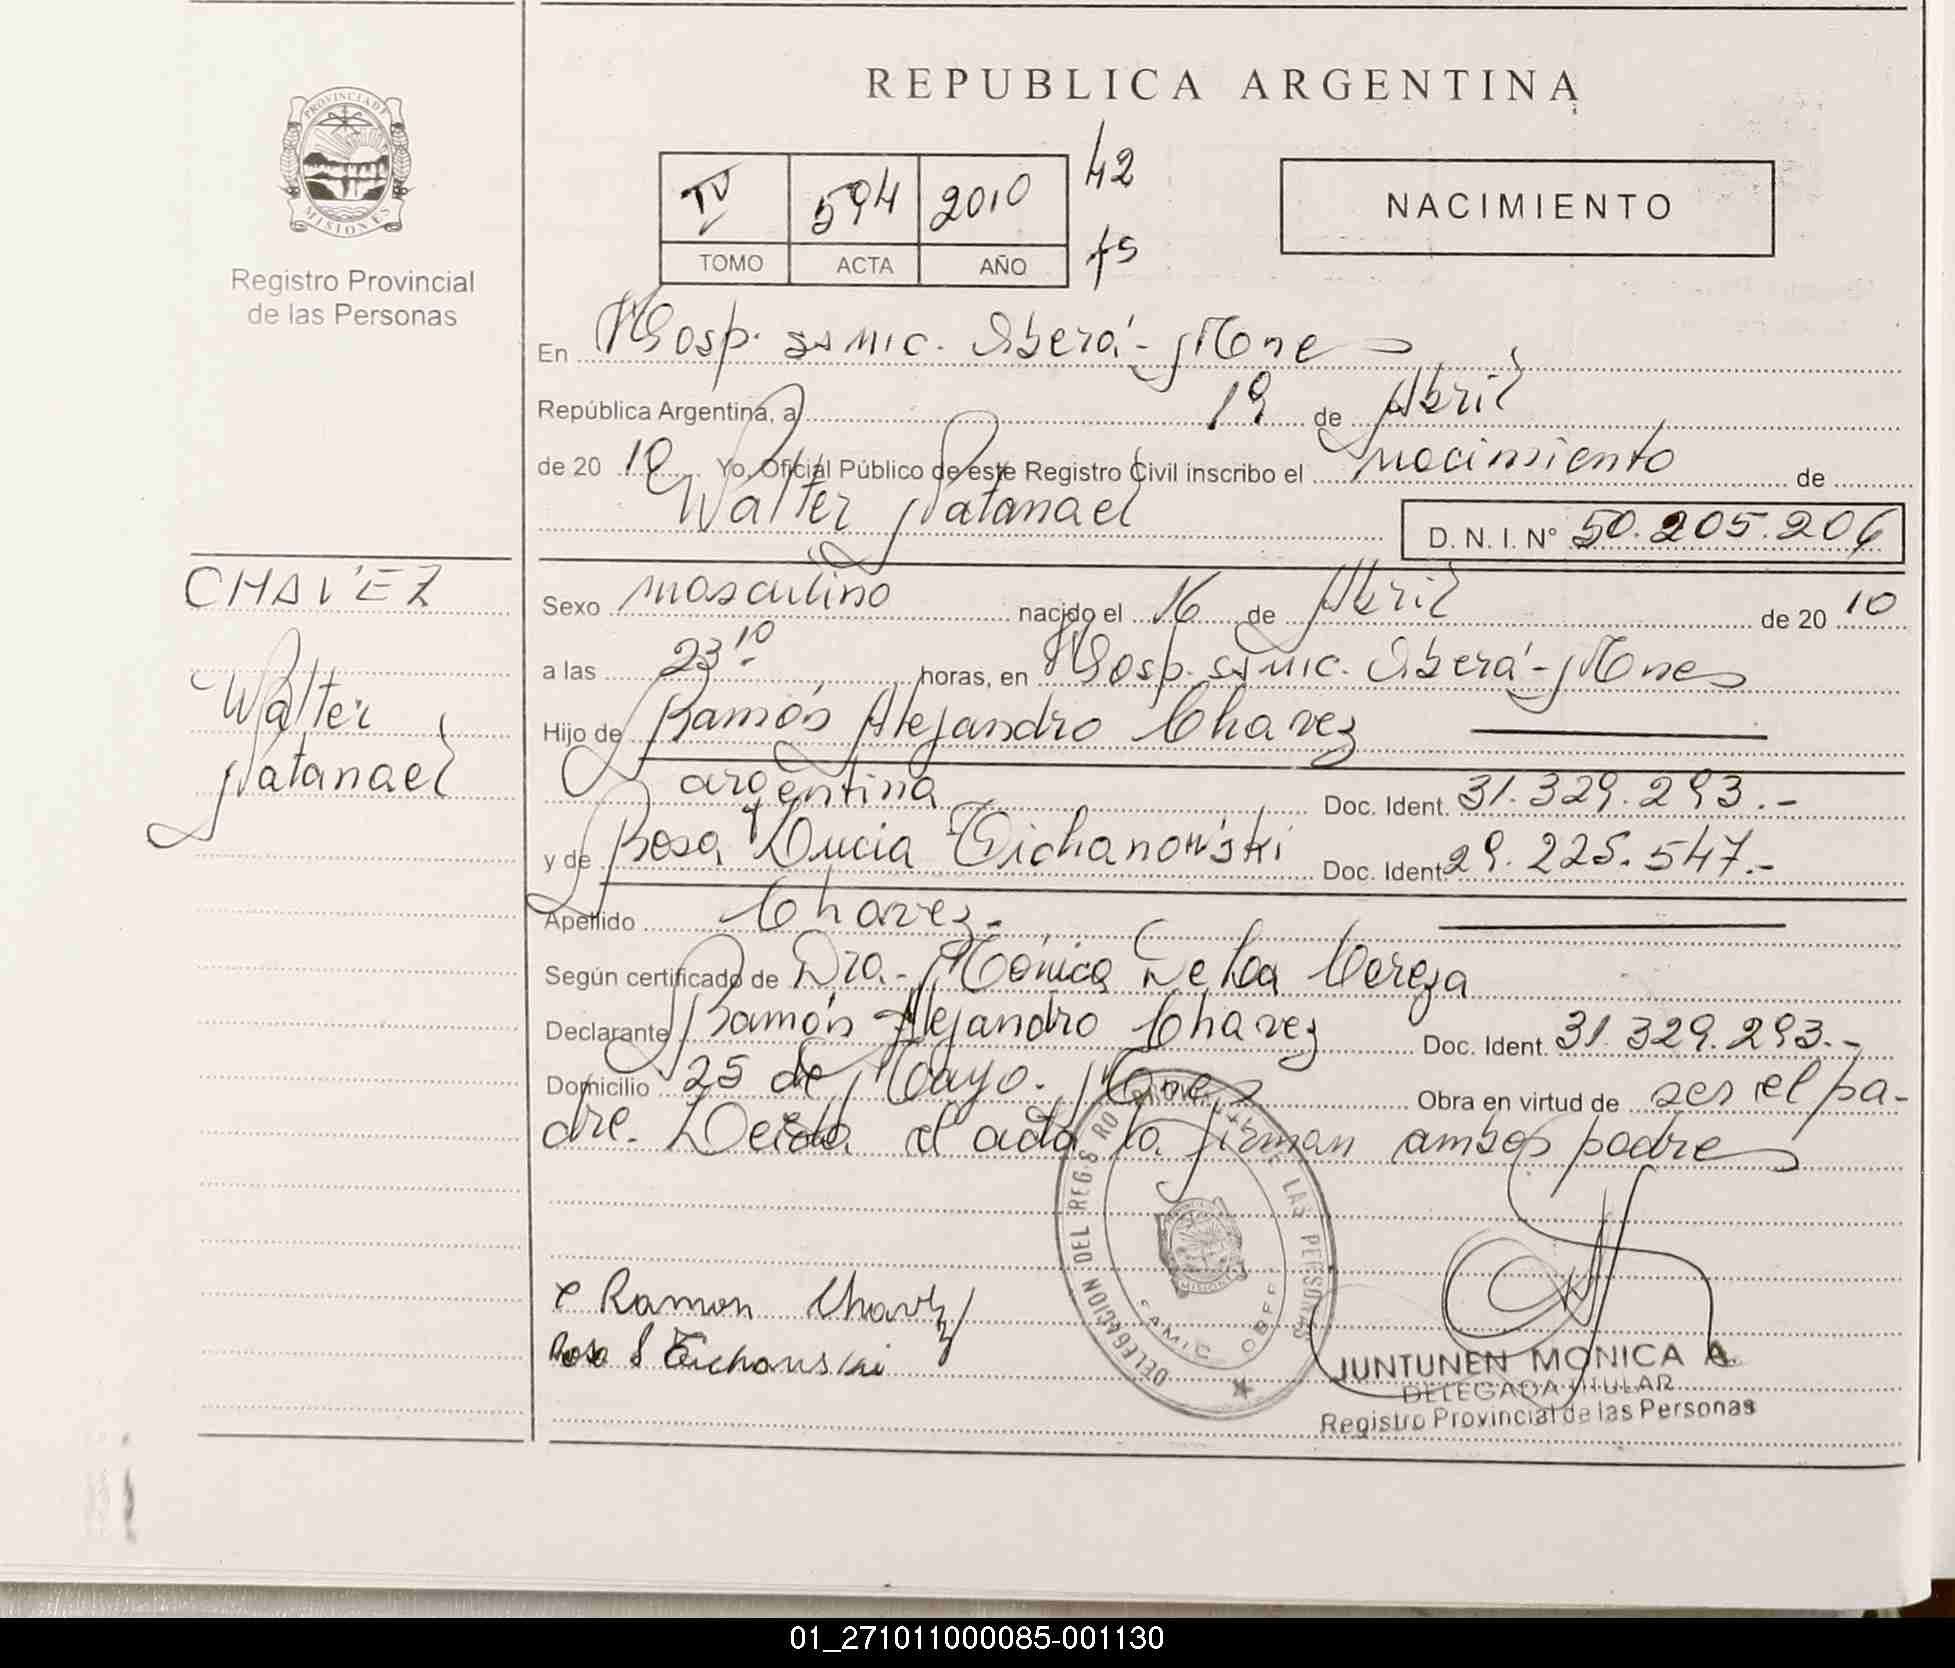 REPUBLICA ARGENTINA
PROVINCIA DE
MISIONES
Registro Provincial
de las Personas
IV 594 2010
TOMO ACTA AÑO
42
75
NACIMIENTO
En Hosp. SAMIC. Oberá - Mnes
República Argentina, a 19 de Abril
de 2010 Yo, Oficial Público de este Registro Civil inscribo el nacimiento de
Walter Natanael
D. N. I. Nº 50.205.206
CHAVEZ
Walter
Natanael
Sexo masculino nacido el 16 de Abril de 2010
a las 23 10 horas, en Hosp. SAMIC. Oberá - Mnes
Hijo de Ramón Alejandro Chavez
argentina Doc. Ident. 31.329.293.-
y de Rosa Lucia Tichanowski Doc. Ident. 29.225.547.-
Apellido Chavez.-
Según certificado de Dra. Mónica De La
Declarante Ramón Alejandro Chavez Doc. Ident. 31.329.293.-
Domicilio 25 de Mayo. Mnes Obra en virtud de ser el pa-
dre. Leída el acta la firman ambos padres
DELEGACION DEL REGISTRO LAS PERSONAS
Ramon Chavez
Rosa L Tichanuski
JUNTUNEN MONICA A.
DELEGADA TITULAR
Registro Provincial de las Personas
01_271011000085-001130